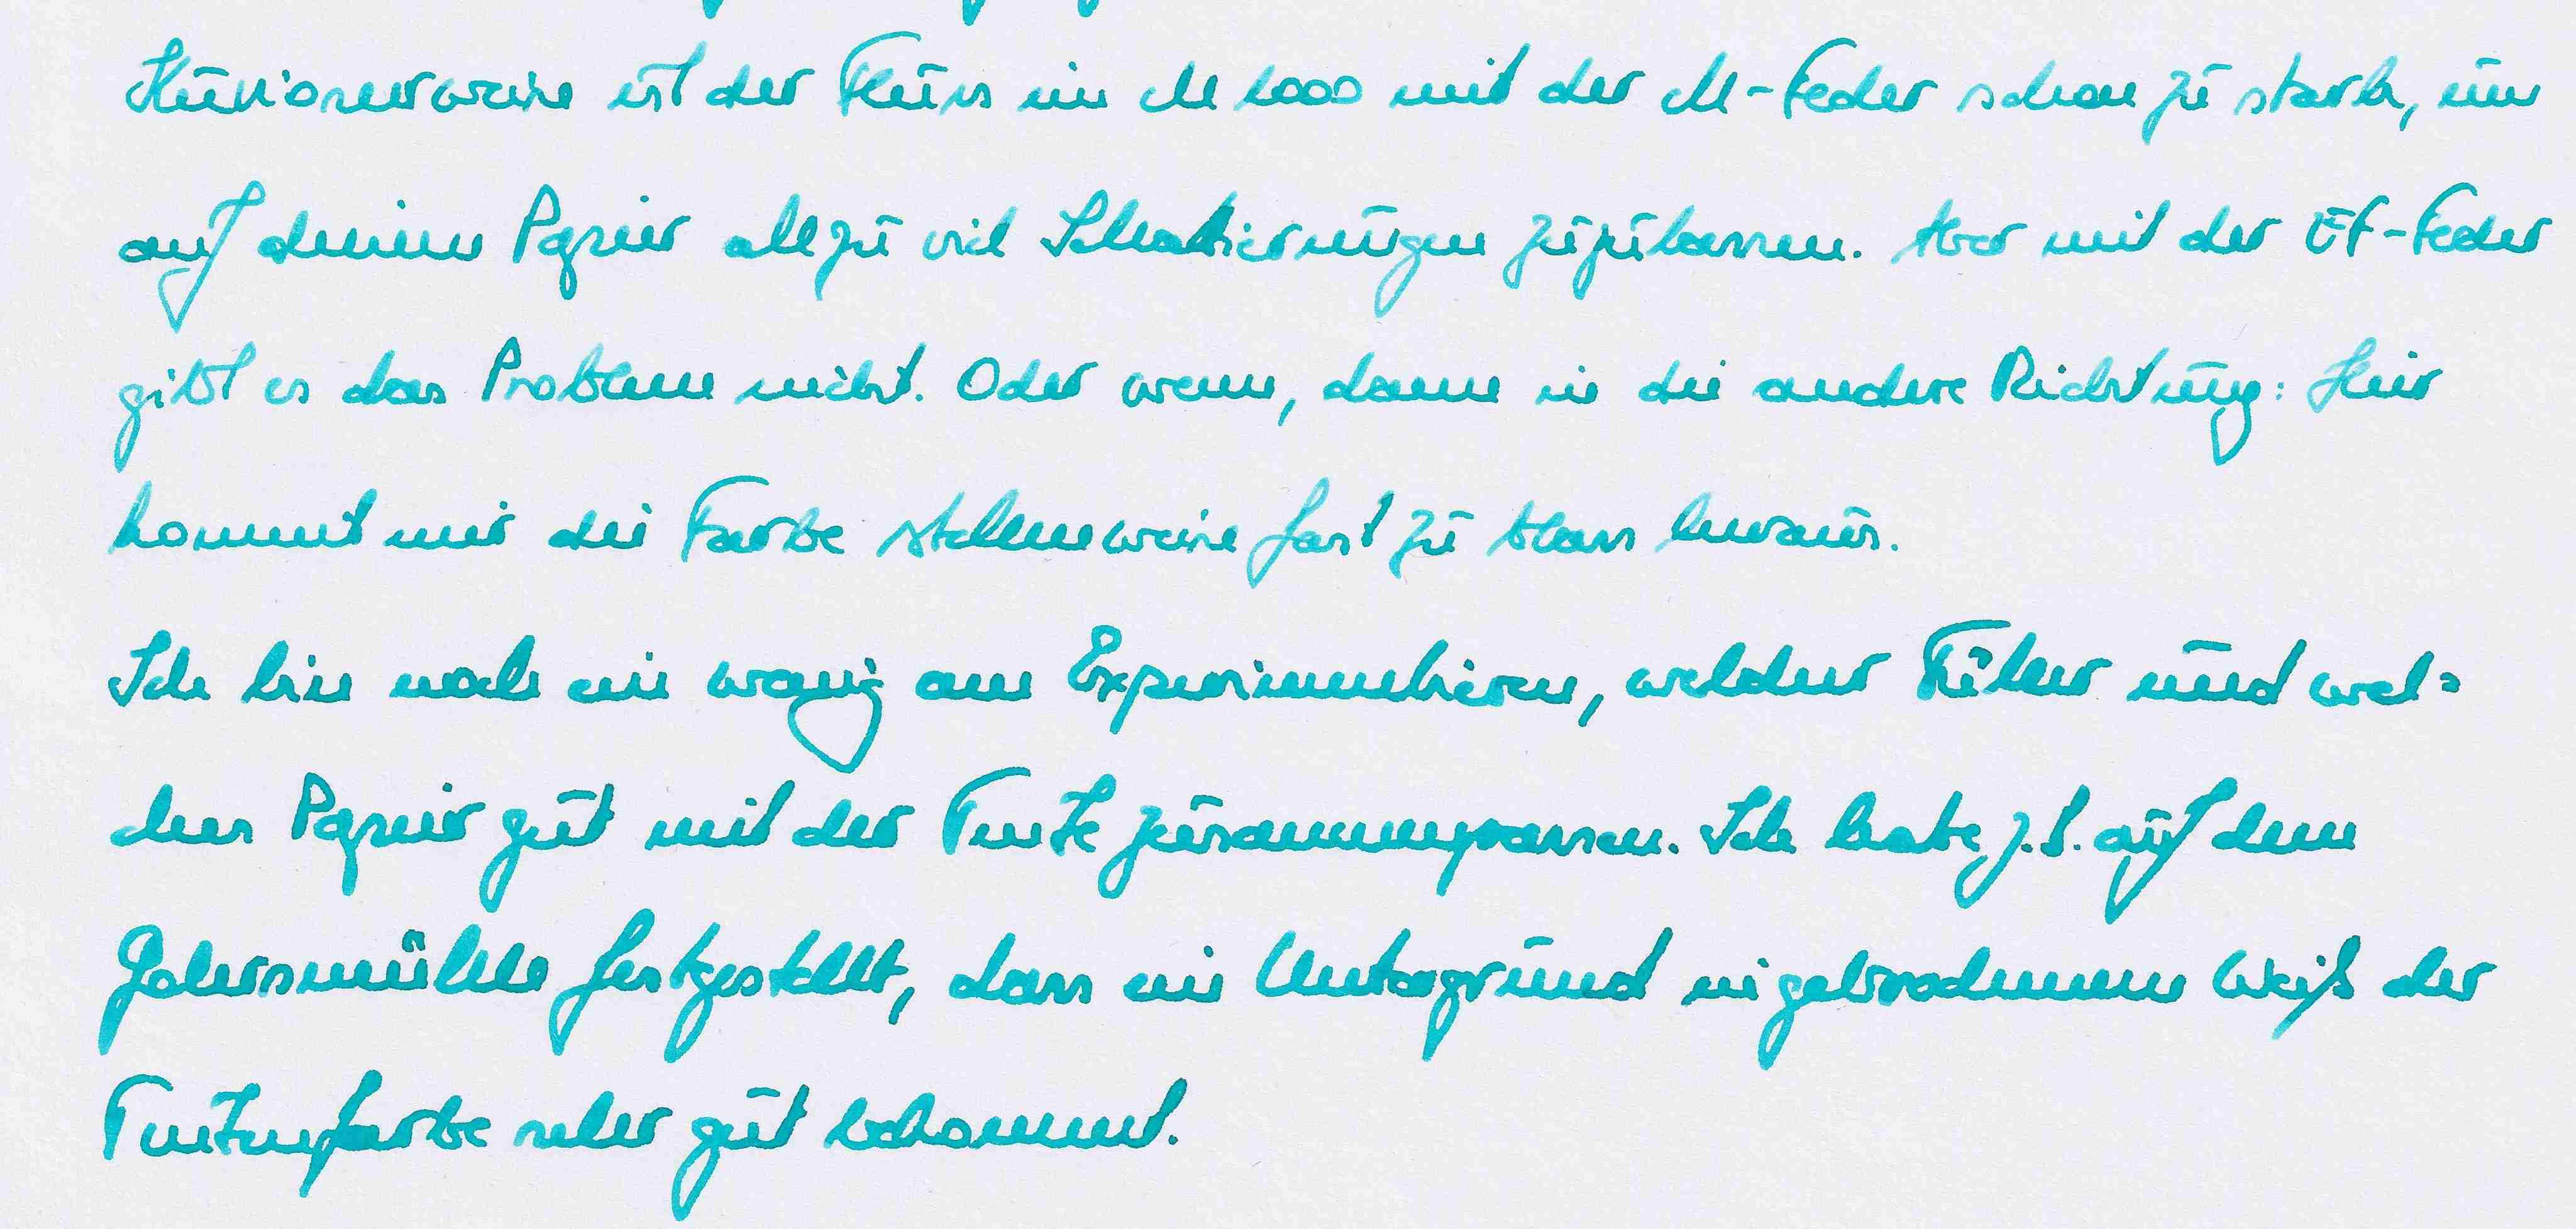 Kurioserweise ist der Fluss im M 1000 mit der M-Feder schon zu stark, um
auf deinem Papier allzu viel Schattierungen zuzulassen. Aber mit der EF-Feder
gibt es das Problem nicht. Oder wenn, dann in die andere Richtung: Hier
kommt mir die Farbe stellenweise fast zu blass heraus.
Ich bin noch ein wenig am Experimentieren, welcher Füller und wel=
ches Papier gut mit der Tinte zusammenpassen. Ich habe z.B. auf dem
Gohrsmühle festgestellt, dass ein Untergrund in gebrochenem Weiß der
Tintenfarbe sehr gut bekommt.